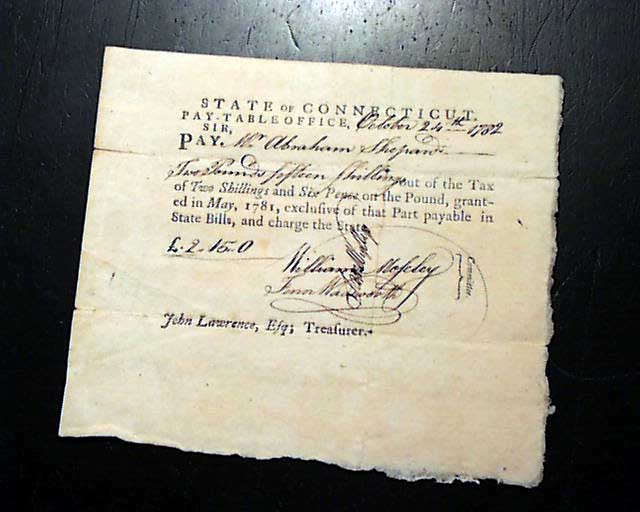 STATE OF CONNECTICUT.
PAY-TABLE OFFICE, October 24th 1782
SIR,
PAY Mr Abraham Shepard
Two Pounds fifteen Shillings out of the Tax
of Two Shillings and Six Pence on the Pound, grant-
ed in May, 1781, exclusive of that Part payable in
State Bills, and charge the State
£.2.15.0
William Moseley
Fenn Wadsworth
Committee
John Lawrence, Esq; Treasurer.